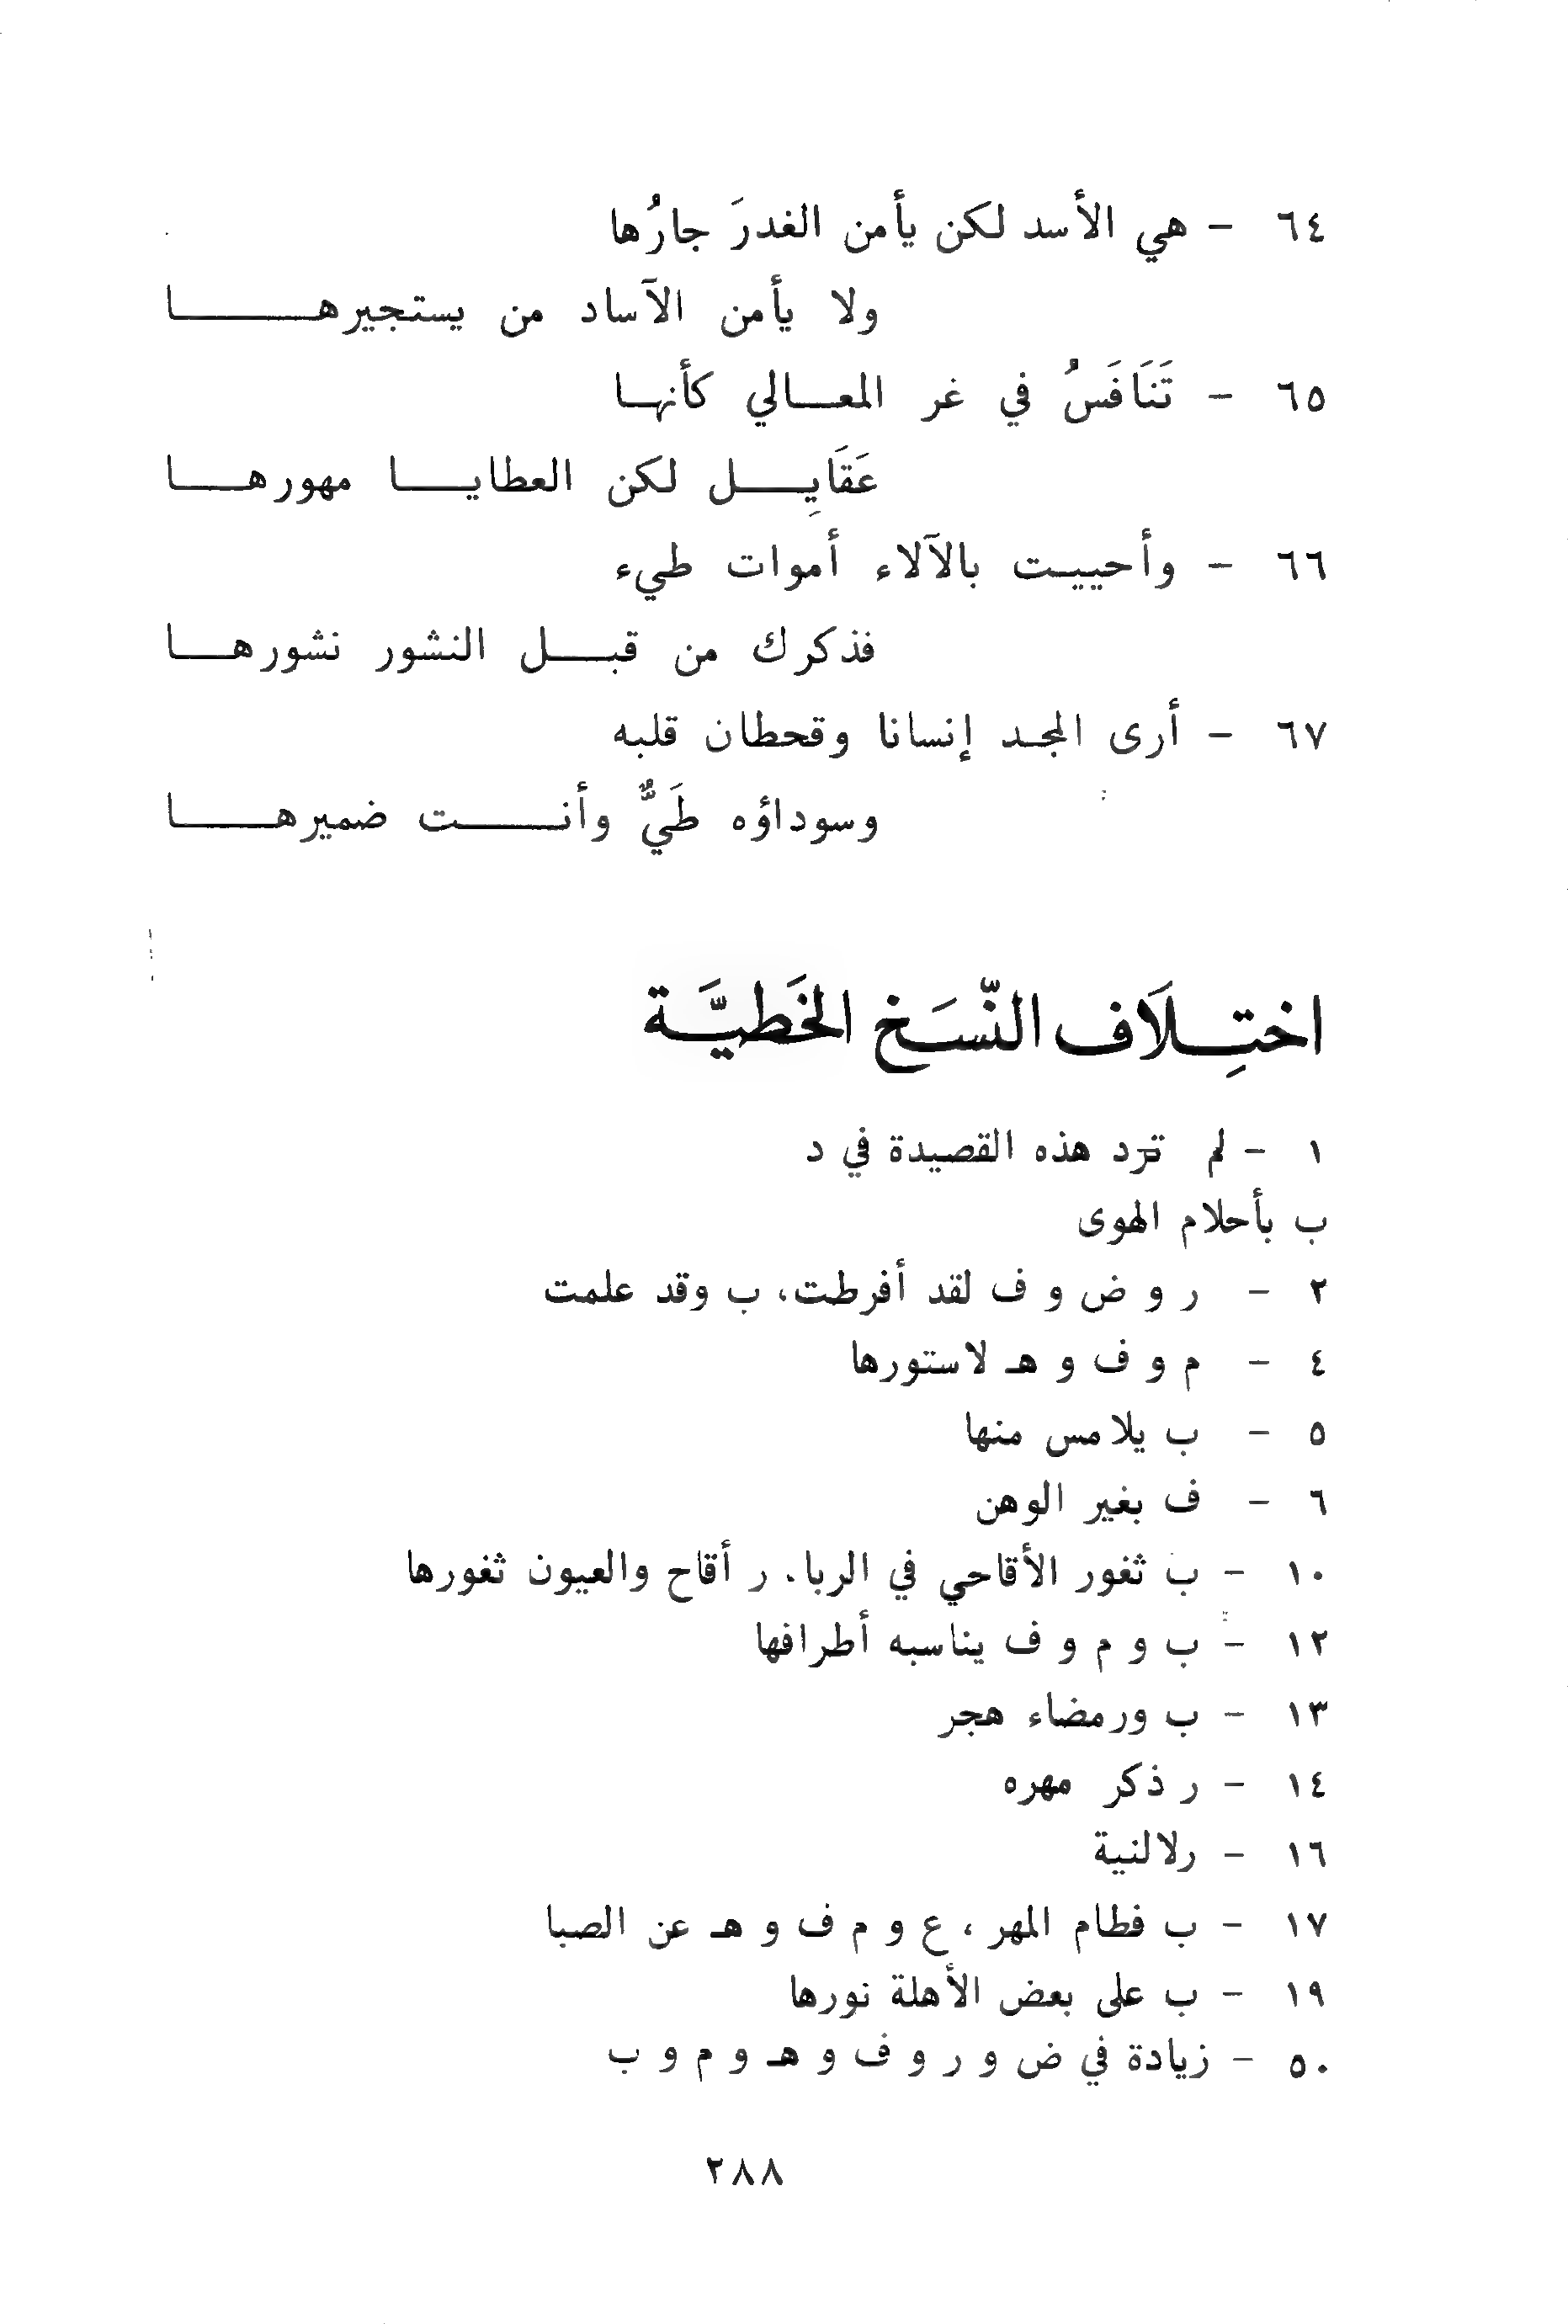 ٦٤ - هي الأسد لكن يأمن الغدرَ جارُها
ولا يأمن الآساد من يستجيرها
٦٥ - تَنَافَسُ في غر المعالي كأنها
عَقَايِل لكن العطايا مهورها
٦٦ - وأحييت بالآلاء أموات طيء
فذكرك من قبل النشور نشورها
٦٧ - أرى المجد إنسانا وقحطان قلبه
وسوداؤه طَيٌّ وأنت ضميرها
اختِلَاف النّسَخ الخَطيَّة
١ - لم ترد هذه القصيدة في د
ب بأحلام الهوى
٢ - ر و ض و ف لقد أفرطت، ب وقد علمت
٤ - م و ف و هـ لاستورها
٥ - ب يلامس منها
٦ - ف بغير الوهن
١٠ - ب ثغور الأقاحي في الربا. ر أقاح والعيون ثغورها
١٢ - ب و م و ف يناسبه أطرافها
١٣ - ب ورمضاء هجر
١٤ - ر ذكر مهره
١٦ - رلالنية
١٧ - ب فطام المهر، ع و م ف و هـ عن الصبا
١٩ - ب على بعض الأهلة نورها
٥٠ - زيادة في ض و ر و ف و هـ و م و ب
٢٨٨